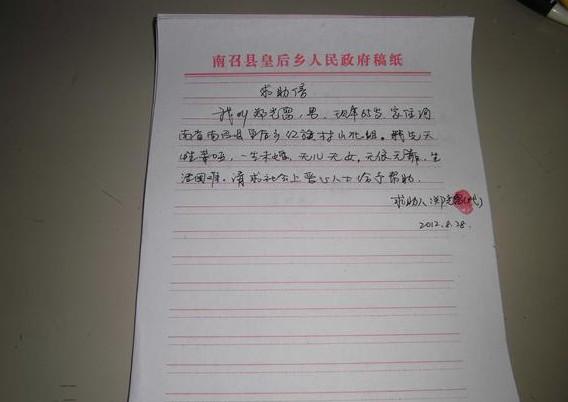 南召县皇后乡人民政府稿纸
求助信
我叫郑光富,男,现年65岁,家住河
南省南召县皇后乡红旗村山北组。我先天
性聋哑,一生未婚,无儿无女,无依无靠,生
活困难。请求社会上爱心人士给予帮助。
求助人:郑光富(代)
2012.8.28.